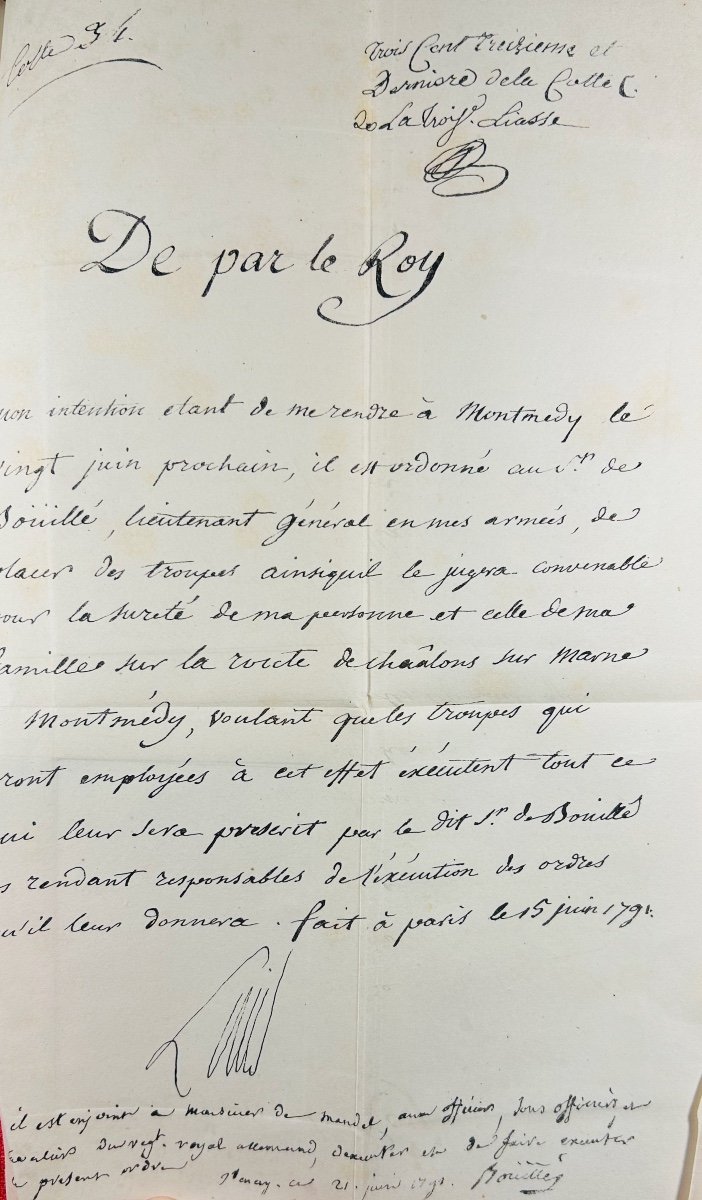 Cotte
Trois Cent Treizieme et
Derniere de la Cotte C.
La Trois.e Liasse
De par le Roy
mon intention etant de me rendre à Montmedy le
vingt juin prochain, il est ordonné au S.r de
Boüillé, lieutenant général en mes armées, de
placer des troupes ainsiquil le jugera convenable
pour la sureté de ma personne et celle de ma
famille sur la route de chaâlons sur Marne
Montmédy, voulant que les troupes qui
ront employées à cet effet éxécutent tout ce
qui leur sera prescrit par le dit S.r de Bouillé
s rendant responsables de l'éxécution des ordres
qu'il leur donnera. fait à paris le 15 juin 1791.
Louis
il est enjoint à monsieur de mandel, aux officiers, sous officiers et
cavaliers du regt. royal allemand, dexecuter et de faire executer
le présent ordre Stenay ce 21 juin 1791. Bouillé